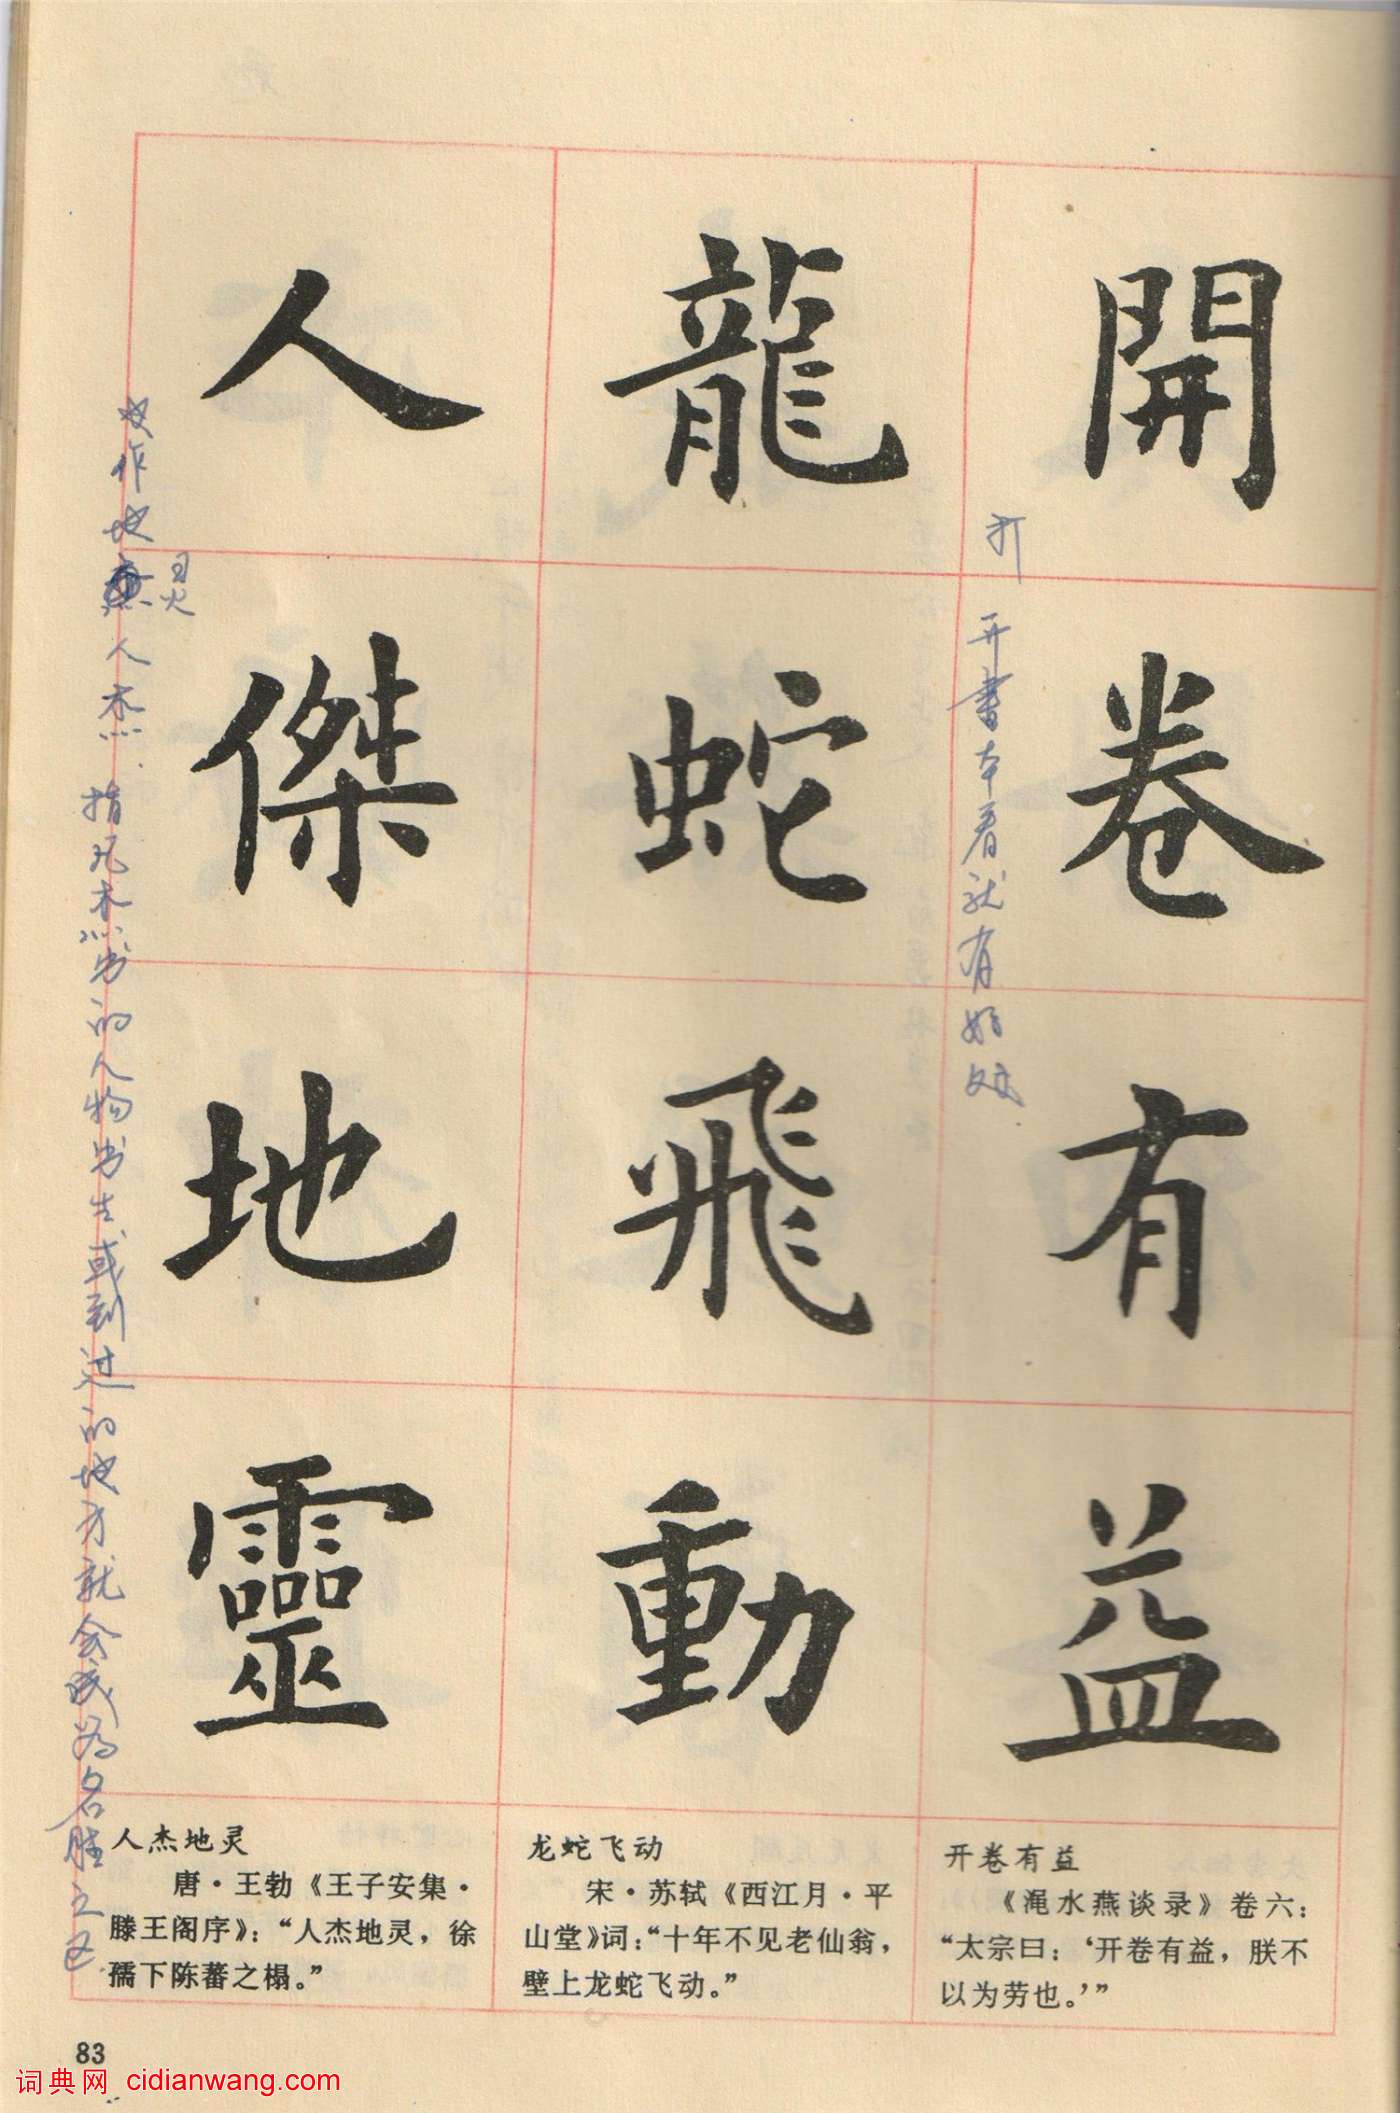 開卷有益
龍蛇飛動
人傑地靈
打开书本看就有好处
又作地灵人杰 指凡杰出的人物出生或到过的地方就会成为名胜之区
开卷有益
《渑水燕谈录》卷六：
“太宗曰：‘开卷有益，朕不
以为劳也。’”
龙蛇飞动
宋·苏轼《西江月·平
山堂》词：“十年不见老仙翁，
壁上龙蛇飞动。”
人杰地灵
唐·王勃《王子安集·
滕王阁序》：“人杰地灵，徐
孺下陈蕃之榻。”
83
词典网 cidianwang.com